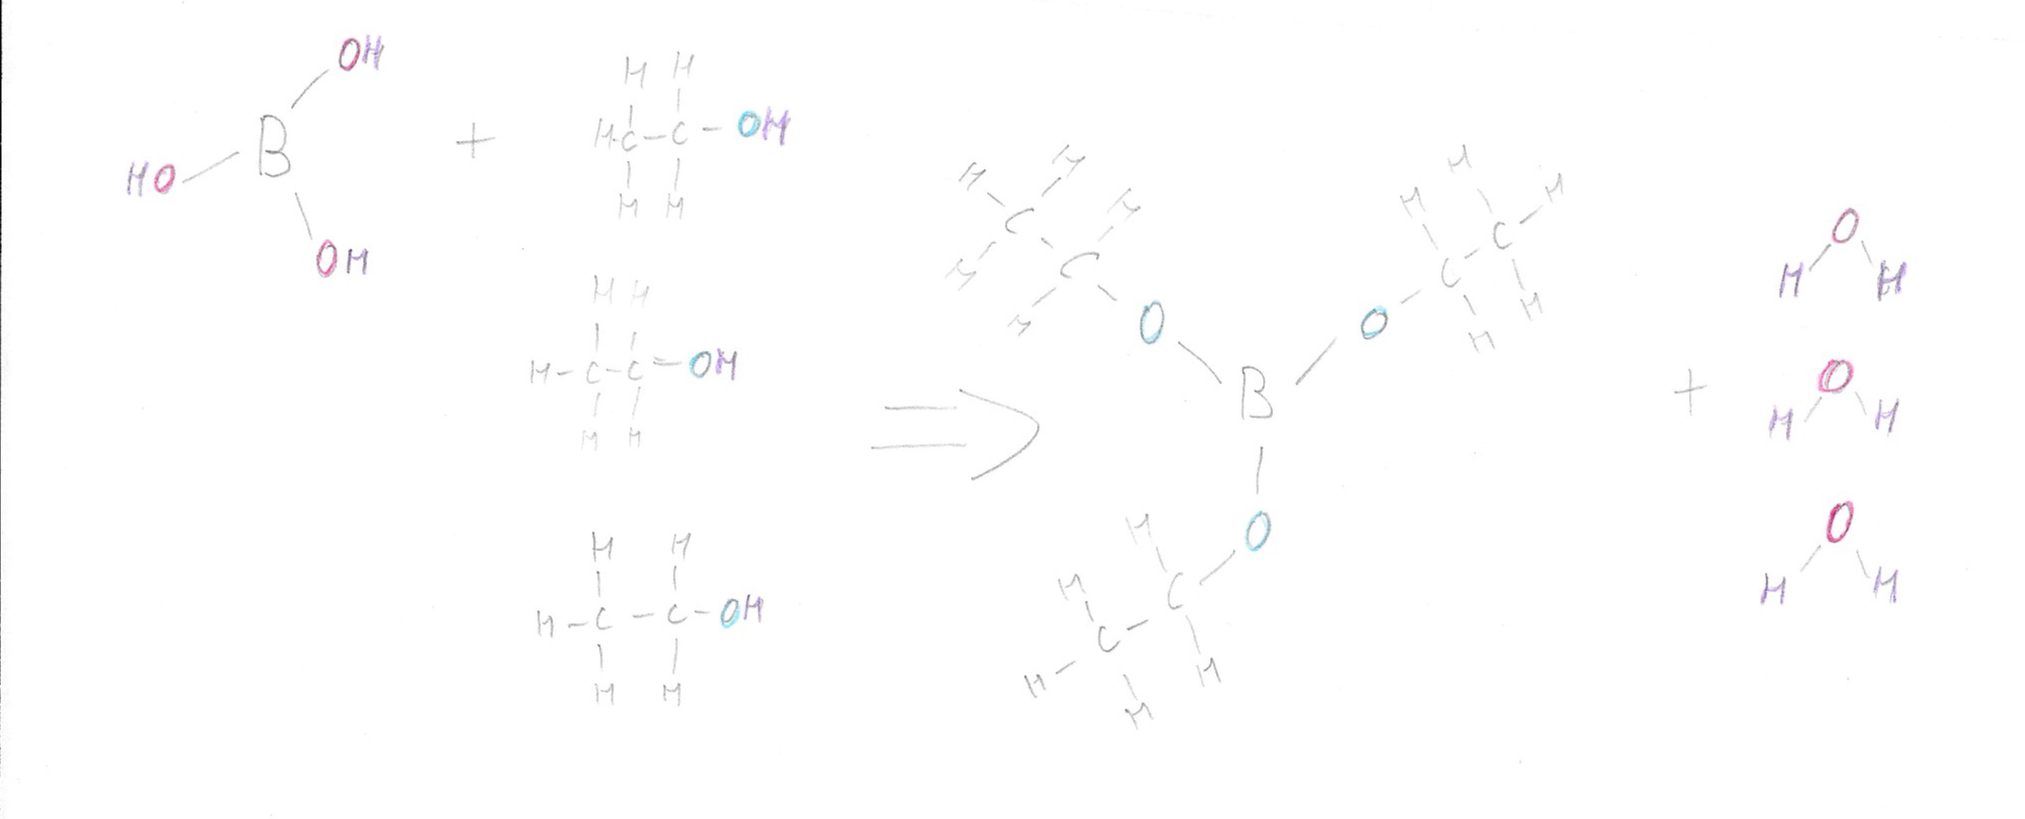 OH
B
HO
OH
+
H H
H-C-C-OH
H H
H H
H-C-C=OH
H H
H H
H-C-C-OH
H H
⇒
H H
C H
C
H H
O
B
H H
H C
C
O H
H
O
H
H C
C
H H
H
+
O
H H
O
H H
O
H H